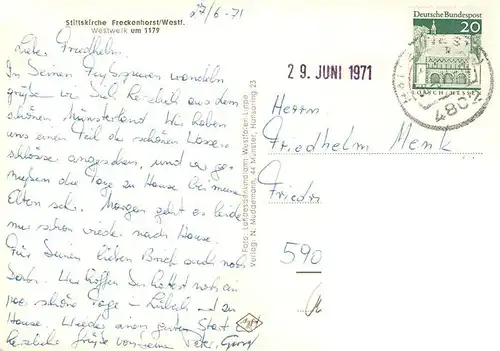 27/6-71
Stiftskirche Freckenhorst/Westf.
Westwerk um 1179
Lieber Friedhelm,
In Deinen Fußspuren wandeln
grüßen wir Dich herzlich aus dem
schönen Münsterland. Wir haben
uns einen Teil der schönen Wasser-
schlösser angesehen, und
die Tage zu Hause bei meinen
Alten sehr. Morgen geht es leider
nun schon wieder nach Hause.
Für Deinen lieben Brief auch noch
Dank. Wir hoffen Du hattest noch ein
paar schöne Tage in Lübeck und zu
Hause. Wieder einen guten Start
herzliche Grüße von Peter,
Foto: Landesbildstelle Westfalen-Lippe
Verlag: N. Muddemann, 44 Münster, Hansaring 23
29. JUNI 1971
Deutsche Bundespost
20
LORSCH HESSEN
480
Herrn
Friedhelm Menk
Friedri
590